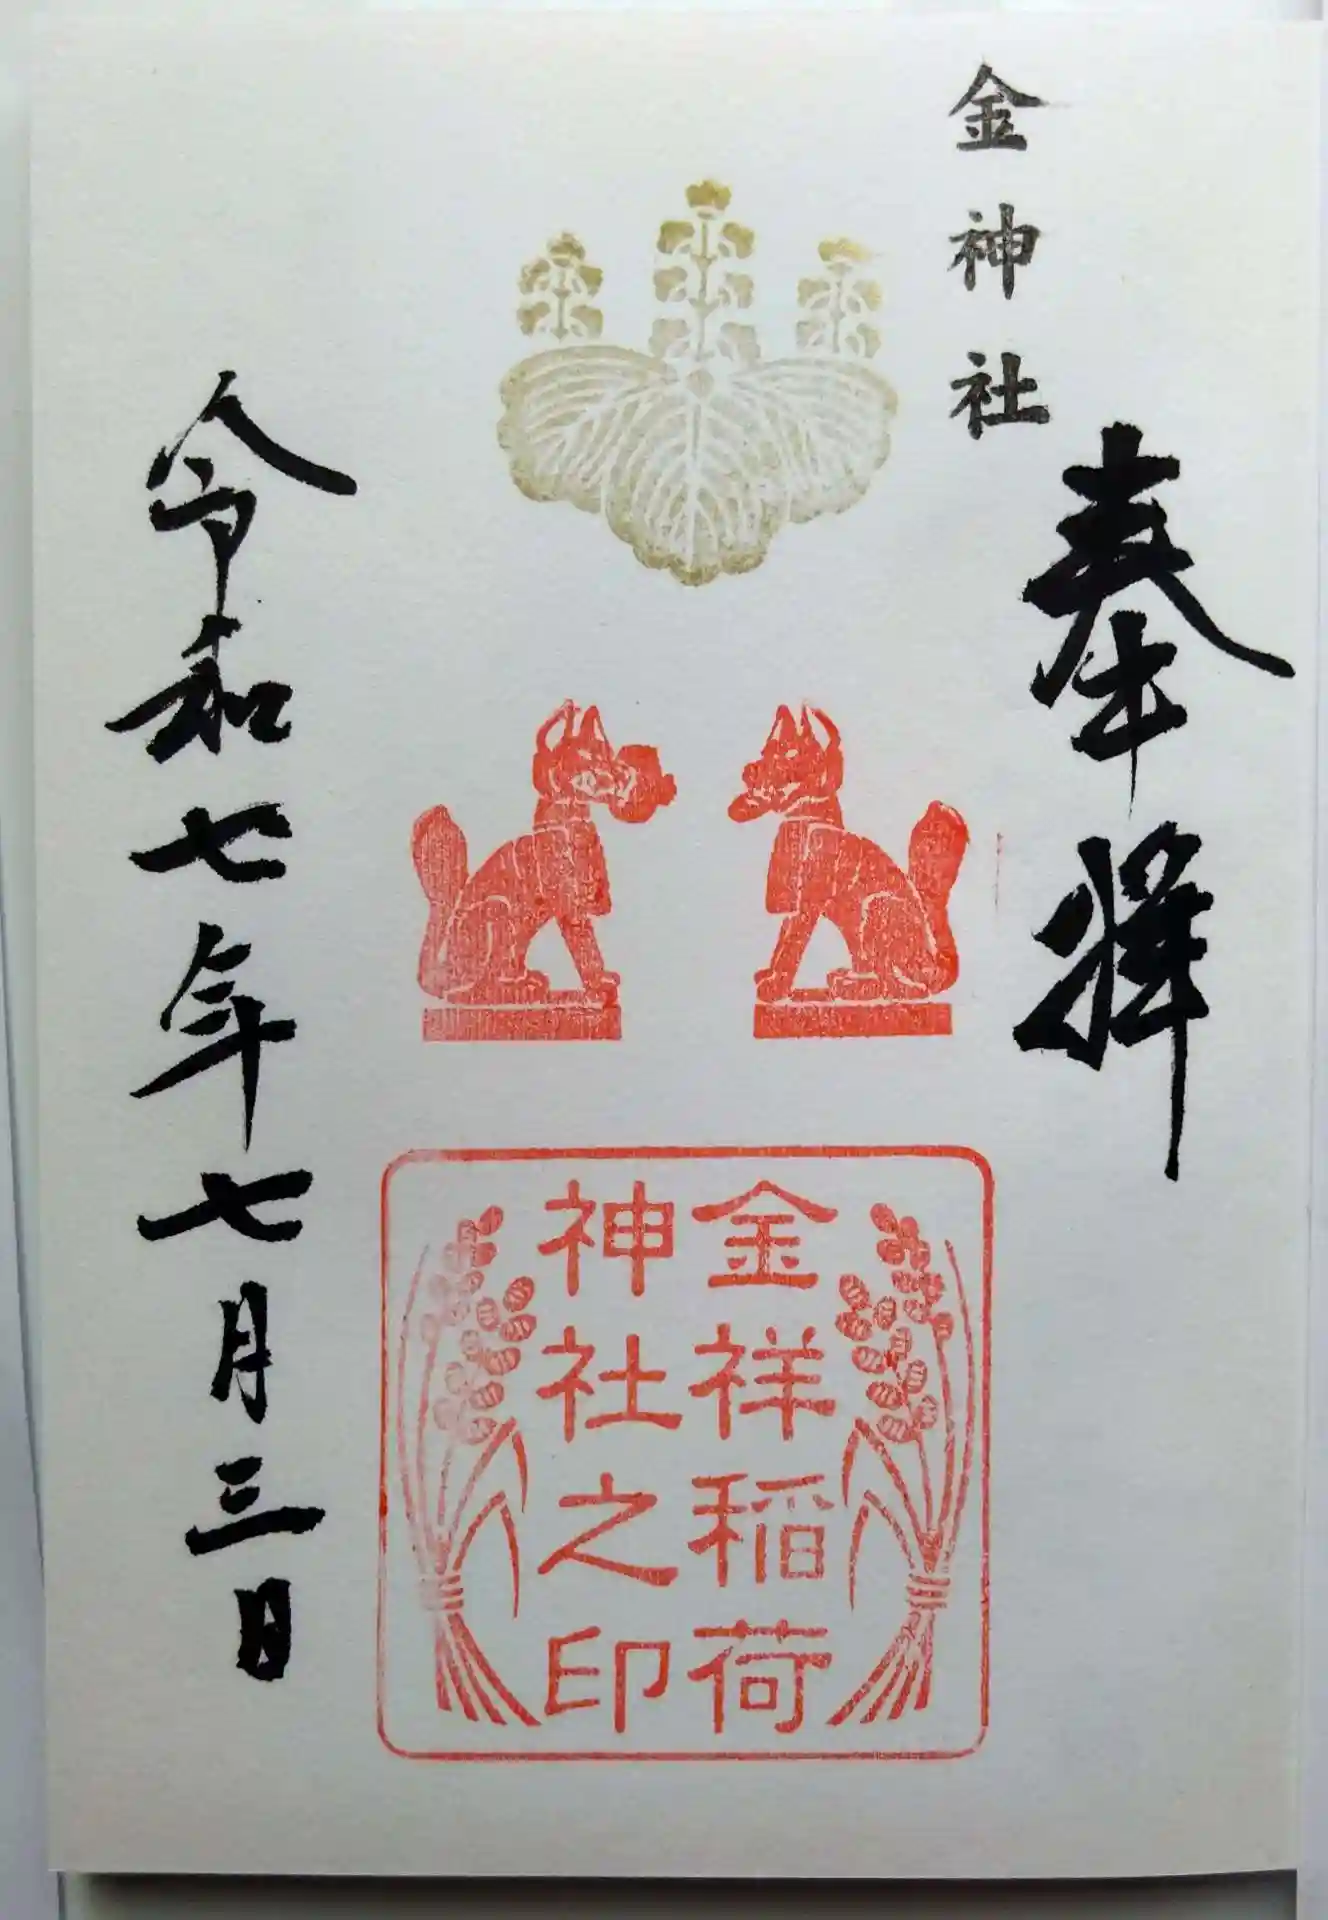 金神社
奉拝
金祥稲荷
神社之印
令和七年七月三日